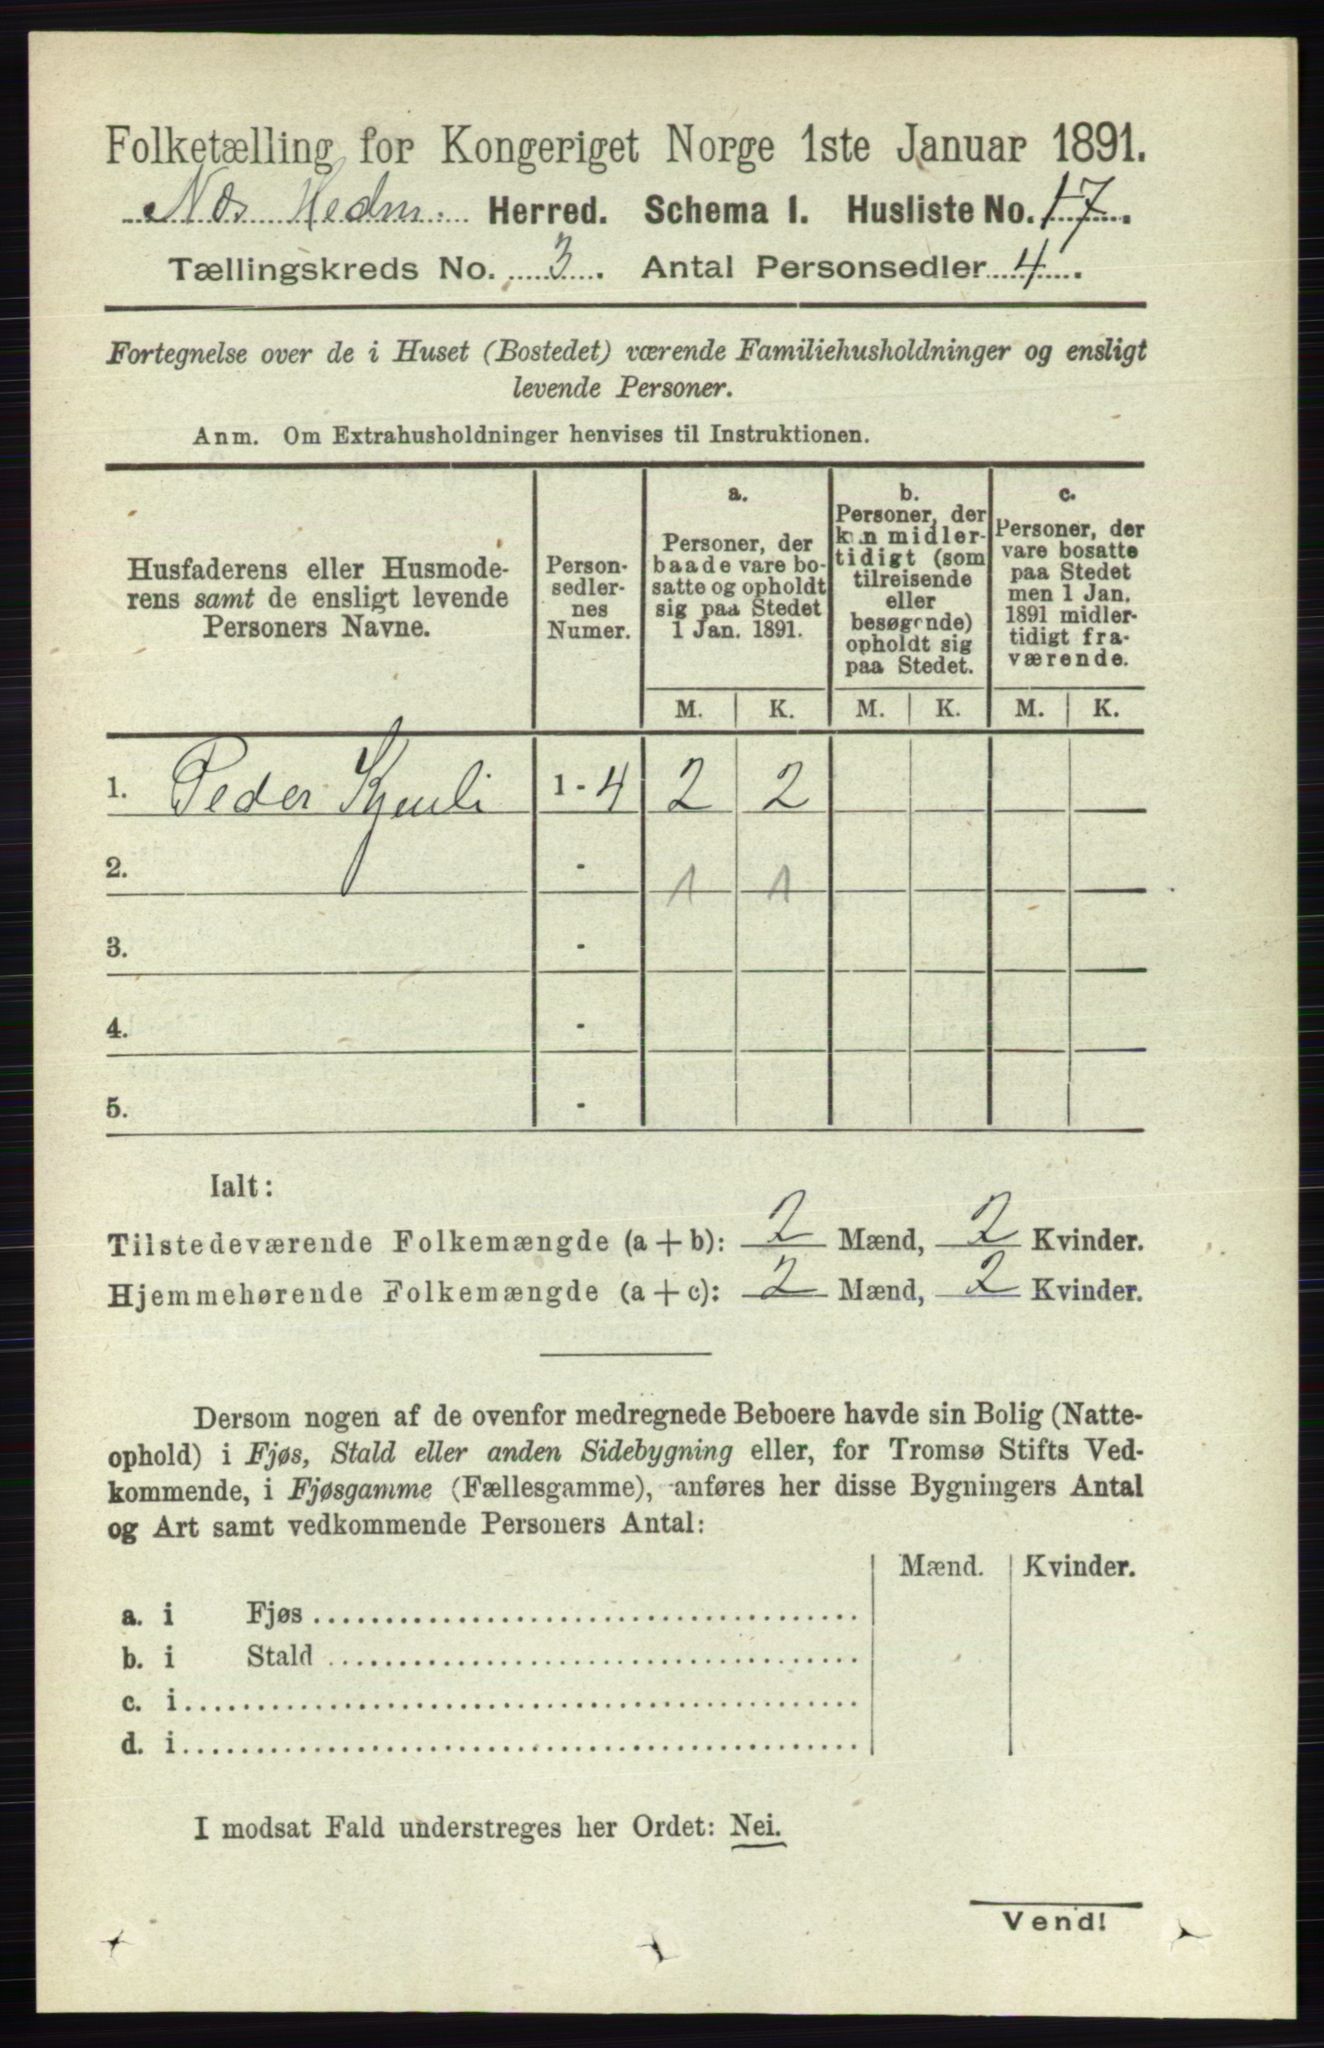 Folketælling for Kongeriget Norge 1ste Januar 1891.
Nor Hedm. Herred. Schema 1. Husliste No. 17.
Tællingskreds No. 3. Antal Personsedler 4.
Fortegnelse over de i Huset (Bostedet) værende Familiehusholdninger og ensligt
levende Personer.
Anm. Om Extrahusholdninger henvises til Instruktionen.
Husfaderens eller Husmode-
rens samt de ensligt levende
Personers Navne.
Person-
sedler-
nes
Numer.
a.
Personer, der
baade vare bo-
satte og opholdt
sig paa Stedet
1 Jan. 1891.
b.
Personer, der
kun midler-
tidigt (som
tilreisende
eller
besøgende)
opholdt sig
paa Stedet.
c.
Personer, der
vare bosatte
paa Stedet
men 1 Jan.
1891 midler-
tidigt fra-
værende.
M. K. M. K. M. K.
1. Peder 1 - 4 2 2
2. - 1 1
3. -
4. -
5. -
Ialt:
Tilstedeværende Folkemængde (a + b): 2 Mænd, 2 Kvinder.
Hjemmehørende Folkemængde (a + c): 2 Mænd, 2 Kvinder.
Dersom nogen af de ovenfor medregnede Beboere havde sin Bolig (Natte-
ophold) i Fjøs, Stald eller anden Sidebygning eller, for Tromsø Stifts Ved-
kommende, i Fjøsgamme (Fællesgamme), anføres her disse Bygningers Antal
og Art samt vedkommende Personers Antal:
Mænd. Kvinder.
a. i Fjøs
b. i Stald
c. i
d. i
I modsat Fald understreges her Ordet: Nei.
Vend!